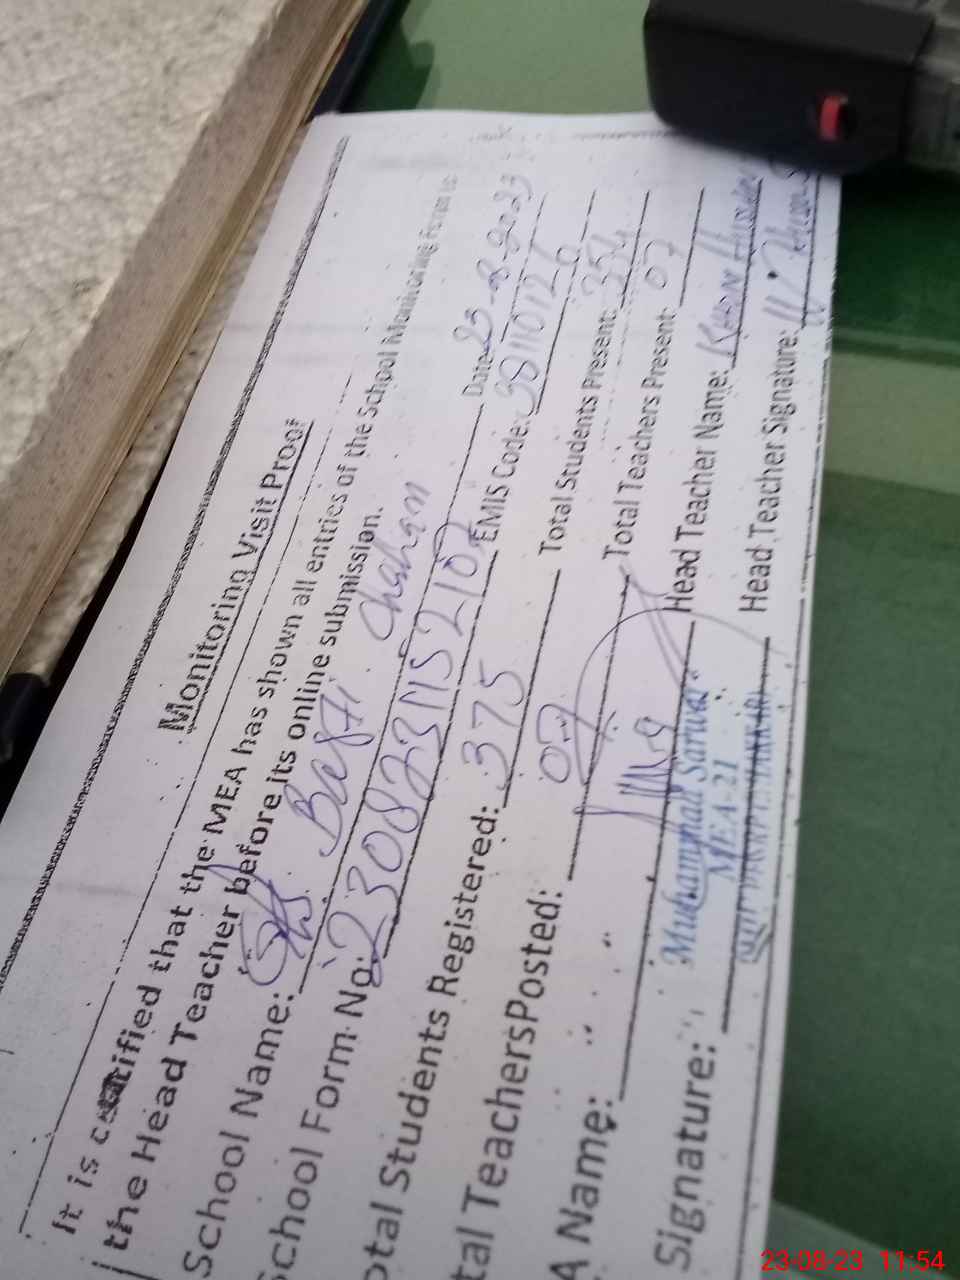 Monitoring Visit Proof
It is certified that the MEA has shown all entries of the School Monitoring Form to
the Head Teacher before its online submission.
School Name: Basti Chahan Date: 23-8-2023
School Form No: 230823115210 EMIS Code:
otal Students Registered: 375 Total Students Present:
tal Teachers Posted: 07 Total Teachers Present: 07
A Name: Head Teacher Name:
Muhammad Sarwar
MEA-21
Signature: Head Teacher Signature:
23-08-23 11:54